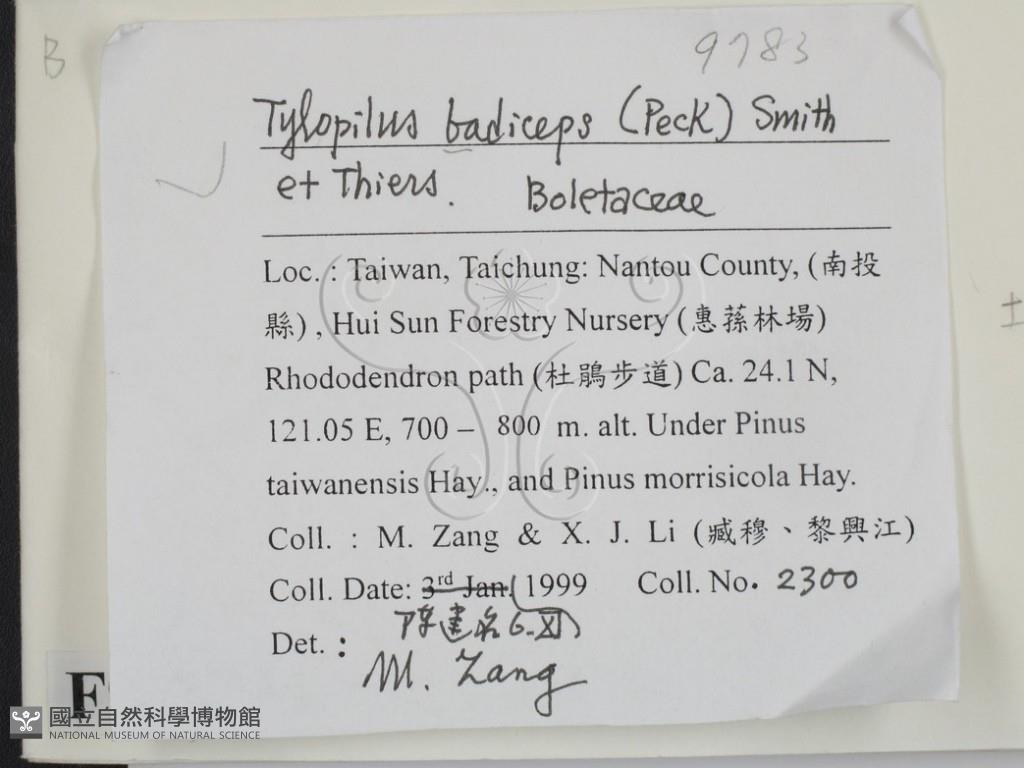 B
9783
Tylopilus badiceps (Peck) Smith
et Thiers. Boletaceae
Loc. : Taiwan, Taichung: Nantou County, (南投
縣) , Hui Sun Forestry Nursery (惠蓀林場)
Rhododendron path (杜鵑步道) Ca. 24.1 N,
121.05 E, 700 – 800 m. alt. Under Pinus
taiwanensis Hay., and Pinus morrisicola Hay.
Coll. : M. Zang & X. J. Li (臧穆、黎興江)
Coll. Date: 3rd Jan. 1999 Coll. No. 2300
陈建名 6. XI
Det. :
M. Zang
F
國立自然科學博物館
NATIONAL MUSEUM OF NATURAL SCIENCE